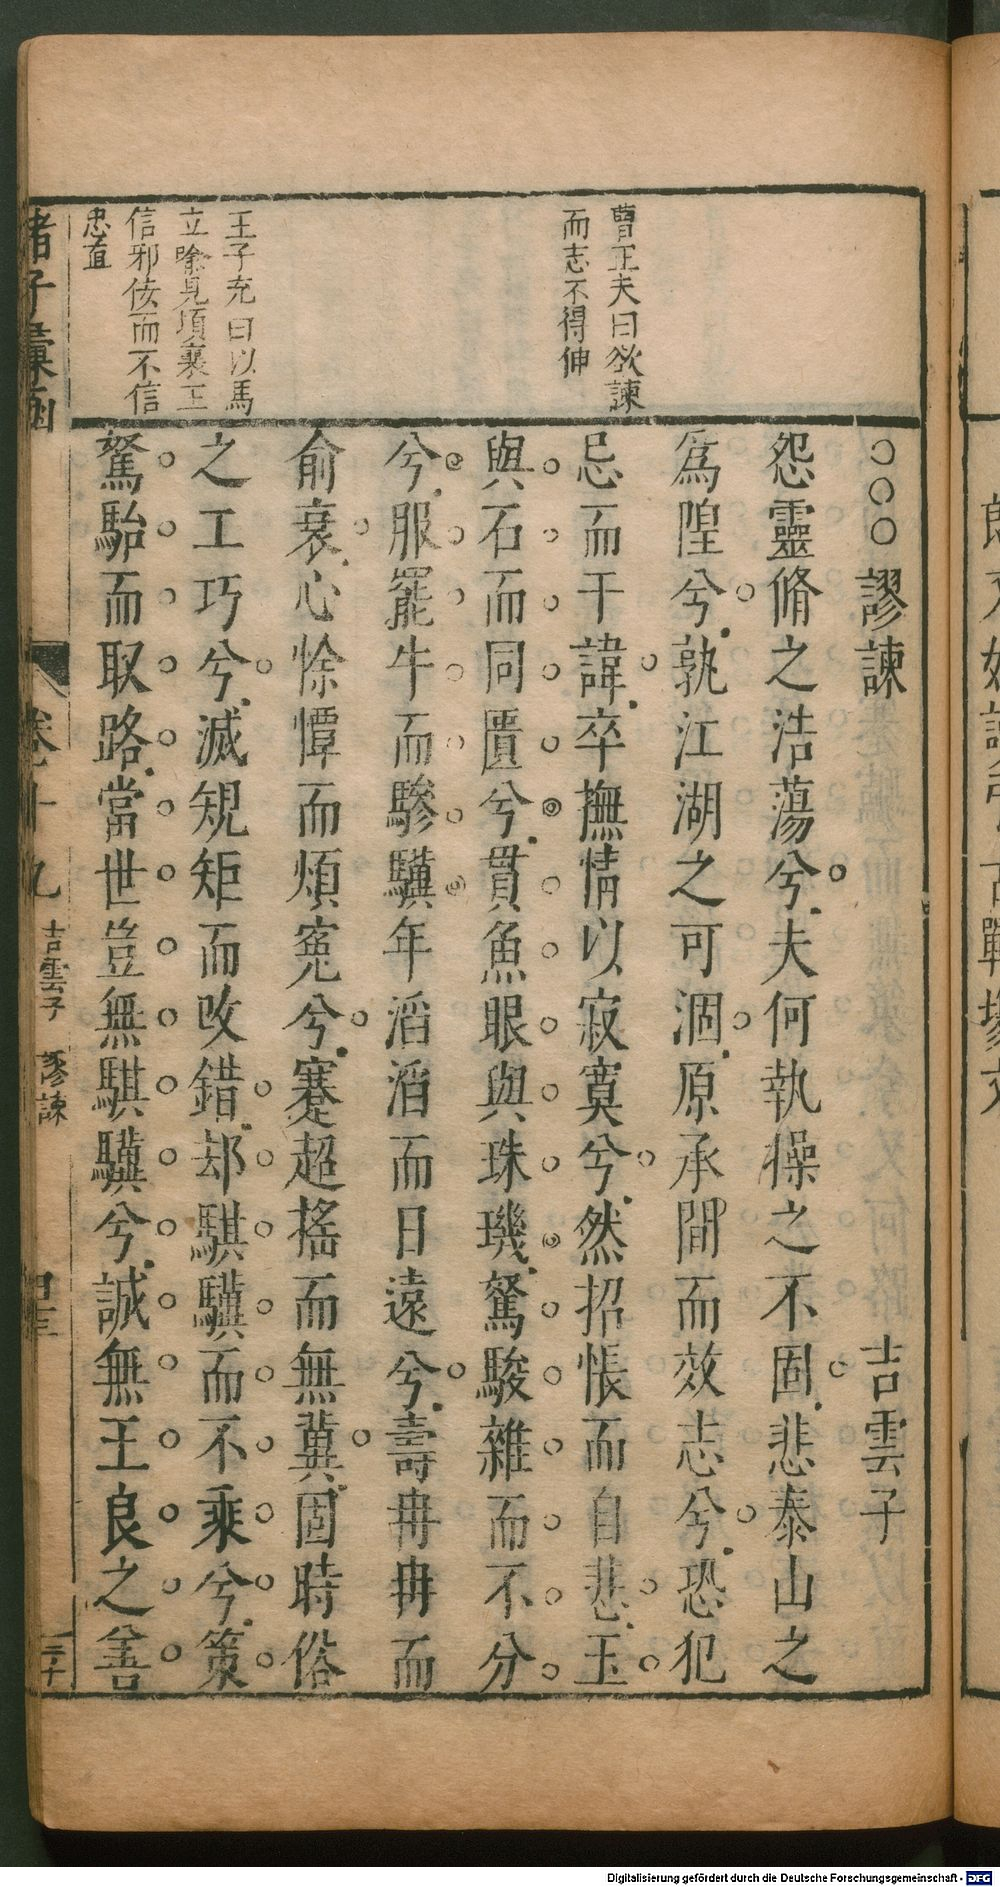 曹正夫曰欲諫
而志不得伸
王子充曰以馬
立喻見頃襄王
信邪佞而不信
忠直
○○○謬諫 吉雲子
怨靈脩之浩蕩兮夫何執操之不固悲泰山之
爲隍兮孰江湖之可涸原承間而效志兮恐犯
忌而干諱卒撫情以寂寞兮然招悵而自悲玉
與石而同匱兮貫魚眼與珠璣駑駿雜而不分
兮服罷牛而驂驥年滔滔而日遠兮壽冉冉而
俞衰心悇憛而煩寃兮蹇超搖而無冀固時俗
之工巧兮滅規矩而改錯却騏驥而不乘兮策
駑駘而取路當世豈無騏驥兮誠無王良之善
諸子彙函 卷十九 吉雲子 謬諫 三十
Digitalisierung gefördert durch die Deutsche Forschungsgemeinschaft - DFG